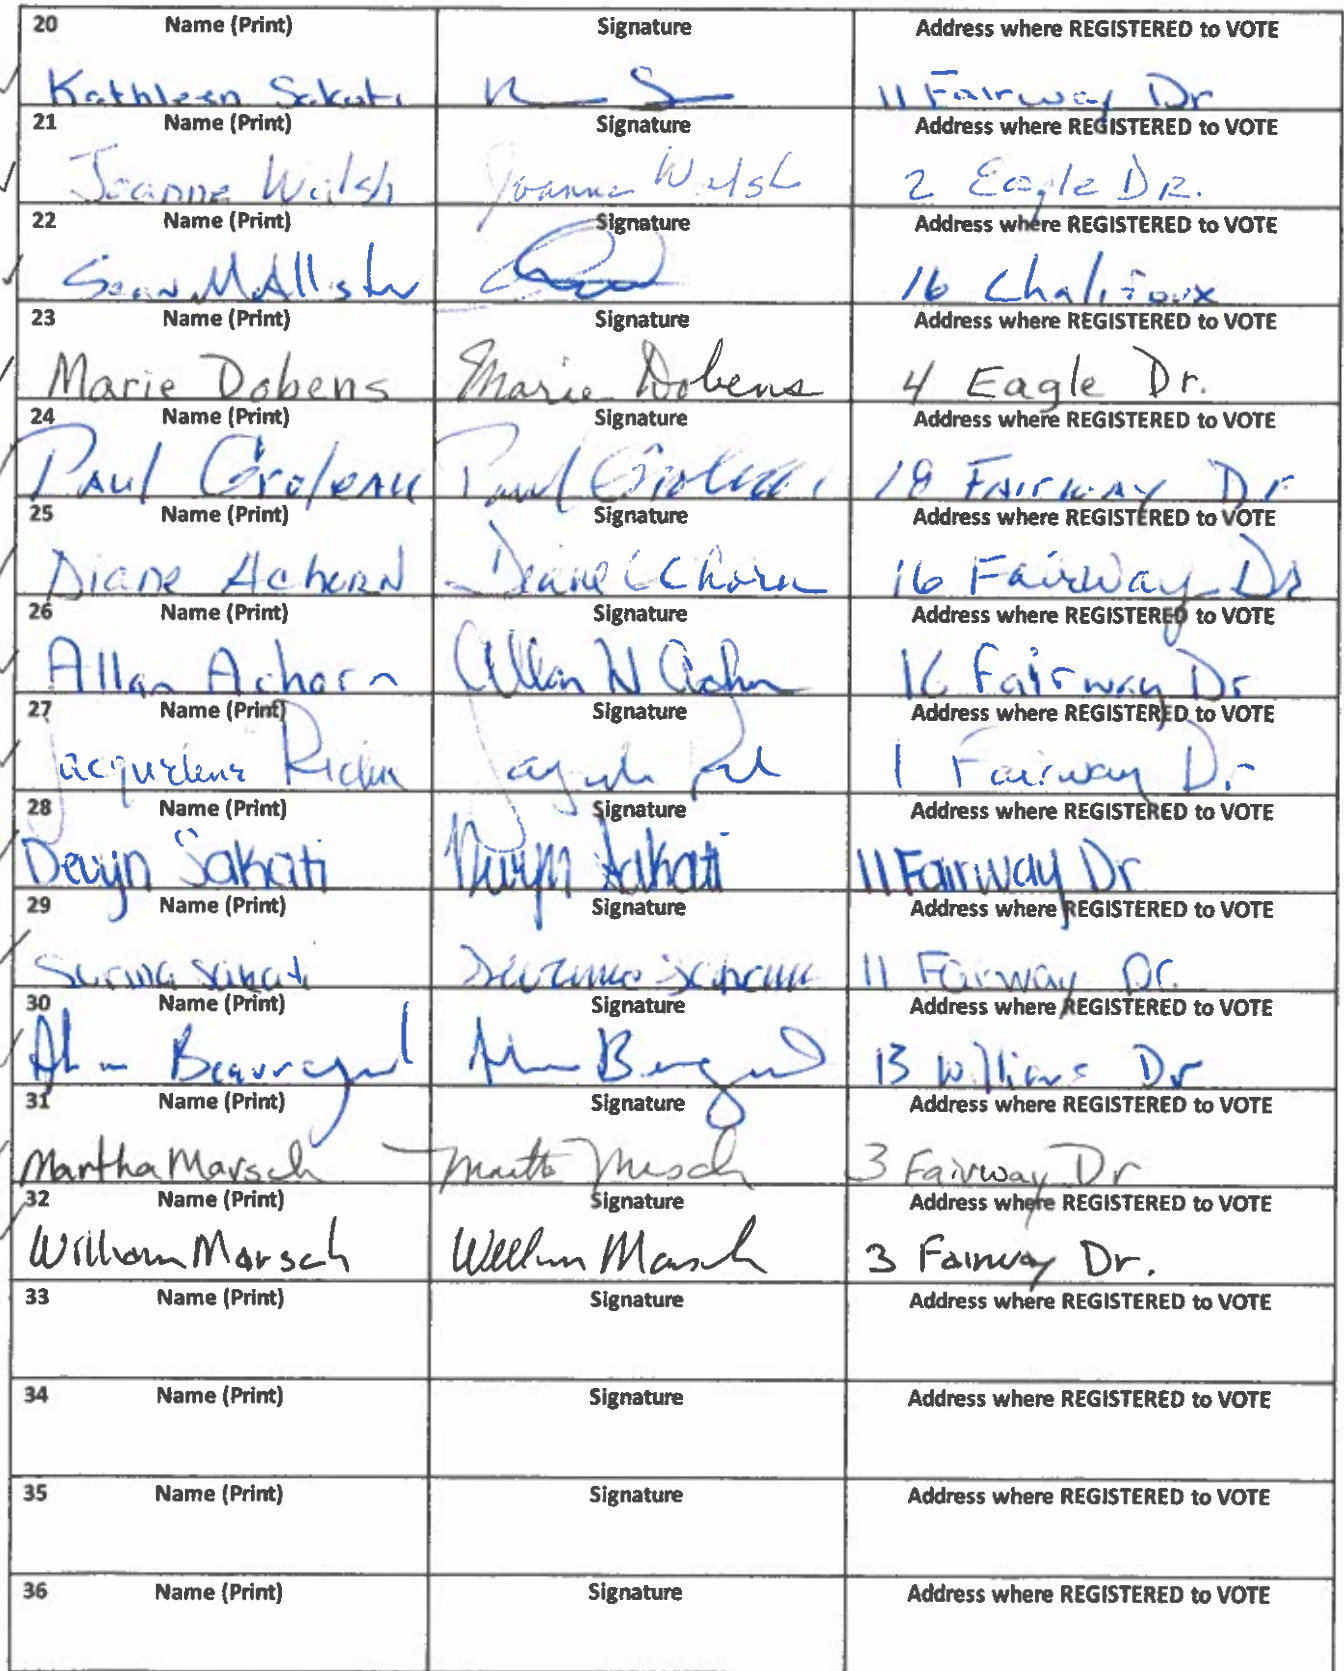 20 Name (Print) Signature Address where REGISTERED to VOTE
Kathleen Sakati 11 Fairway Dr
21 Name (Print) Signature Address where REGISTERED to VOTE
Joanne Walsh Joanne Walsh 2 Eagle DR.
22 Name (Print) Signature Address where REGISTERED to VOTE
Sean McAllister 16 Chalifoux
23 Name (Print) Signature Address where REGISTERED to VOTE
Marie Dobens Marie Dobens 4 Eagle Dr.
24 Name (Print) Signature Address where REGISTERED to VOTE
PAul GroleAu Paul Groleau 18 FAirwAy Dr
25 Name (Print) Signature Address where REGISTERED to VOTE
Diane Achorn Diane Achorn 16 Fairway Dr
26 Name (Print) Signature Address where REGISTERED to VOTE
Allan Achorn Allan W Achorn 16 Fairway Dr
27 Name (Print) Signature Address where REGISTERED to VOTE
Jacqueline 1 Fairway Dr
28 Name (Print) Signature Address where REGISTERED to VOTE
Devyn Sakati Devyn Sakati 11 Fairway Dr
29 Name (Print) Signature Address where REGISTERED to VOTE
Sakati 11 Fairway Dr.
30 Name (Print) Signature Address where REGISTERED to VOTE
Beauregard 13 Williams Dr
31 Name (Print) Signature Address where REGISTERED to VOTE
Martha Marsch Martha Marsch 3 Fairway Dr
32 Name (Print) Signature Address where REGISTERED to VOTE
William Marsch William Marsch 3 Fairway Dr.
33 Name (Print) Signature Address where REGISTERED to VOTE
34 Name (Print) Signature Address where REGISTERED to VOTE
35 Name (Print) Signature Address where REGISTERED to VOTE
36 Name (Print) Signature Address where REGISTERED to VOTE